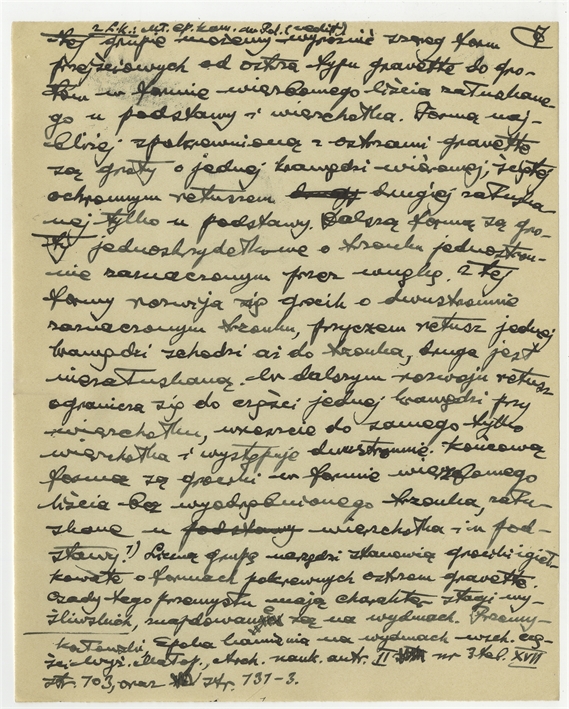 z L.K.: Mł. ep. kam. w Pol. (
7
tej grupie możemy wyróżnić szereg form
przejściowych od ostrza typu gravette do gro-
tów w formie wierzbowego liścia załuskane-
go u podstawy i wierzchołka. Formą naj-
bliżej spokrewnioną z ostrzami gravette
są groty o jednej krawędzi wiórowej, ściętej
ochronnym retuszem drugiej załuska-
nej tylko u podstawy. Dalszą formą są gro-
ty jednoskrzydełkowe o trzonku jednostron-
nie zaznaczonym przez wnękę. Z tej
formy rozwija się grocik o dwustronnie
zaznaczonym trzonku, przyczem retusz jednej
krawędzi zchodzi aż do trzonka, druga jest
niezałuskaną. W dalszym rozwoju retusz
ogranicza się do części jednej krawędzi przy
wierzchołku, wreszcie do samego tylko
wierzchołka i występuje dwustronnie. Końcową
formą są grociki w formie wierzbowego
liścia bez wyodrębnionego trzonka, zału-
skane u podstawy wierzchołka i u pod-
stawy.¹) Liczną grupę narzędzi stanowią grociki igieł-
kowate o formach pokrewnych ostrzom gravette.
Ślady tego przemysłu mają charakter stacji my-
śliwskich, znajdowane są na wydmach. Przemy-
Kozłowski, Epoka kamienia na wydmach wsch. czę-
ści wyż. Małop., Arch. nauk. antr. II nr 3 tabl. XVII
str. 703, oraz str. 731-3.